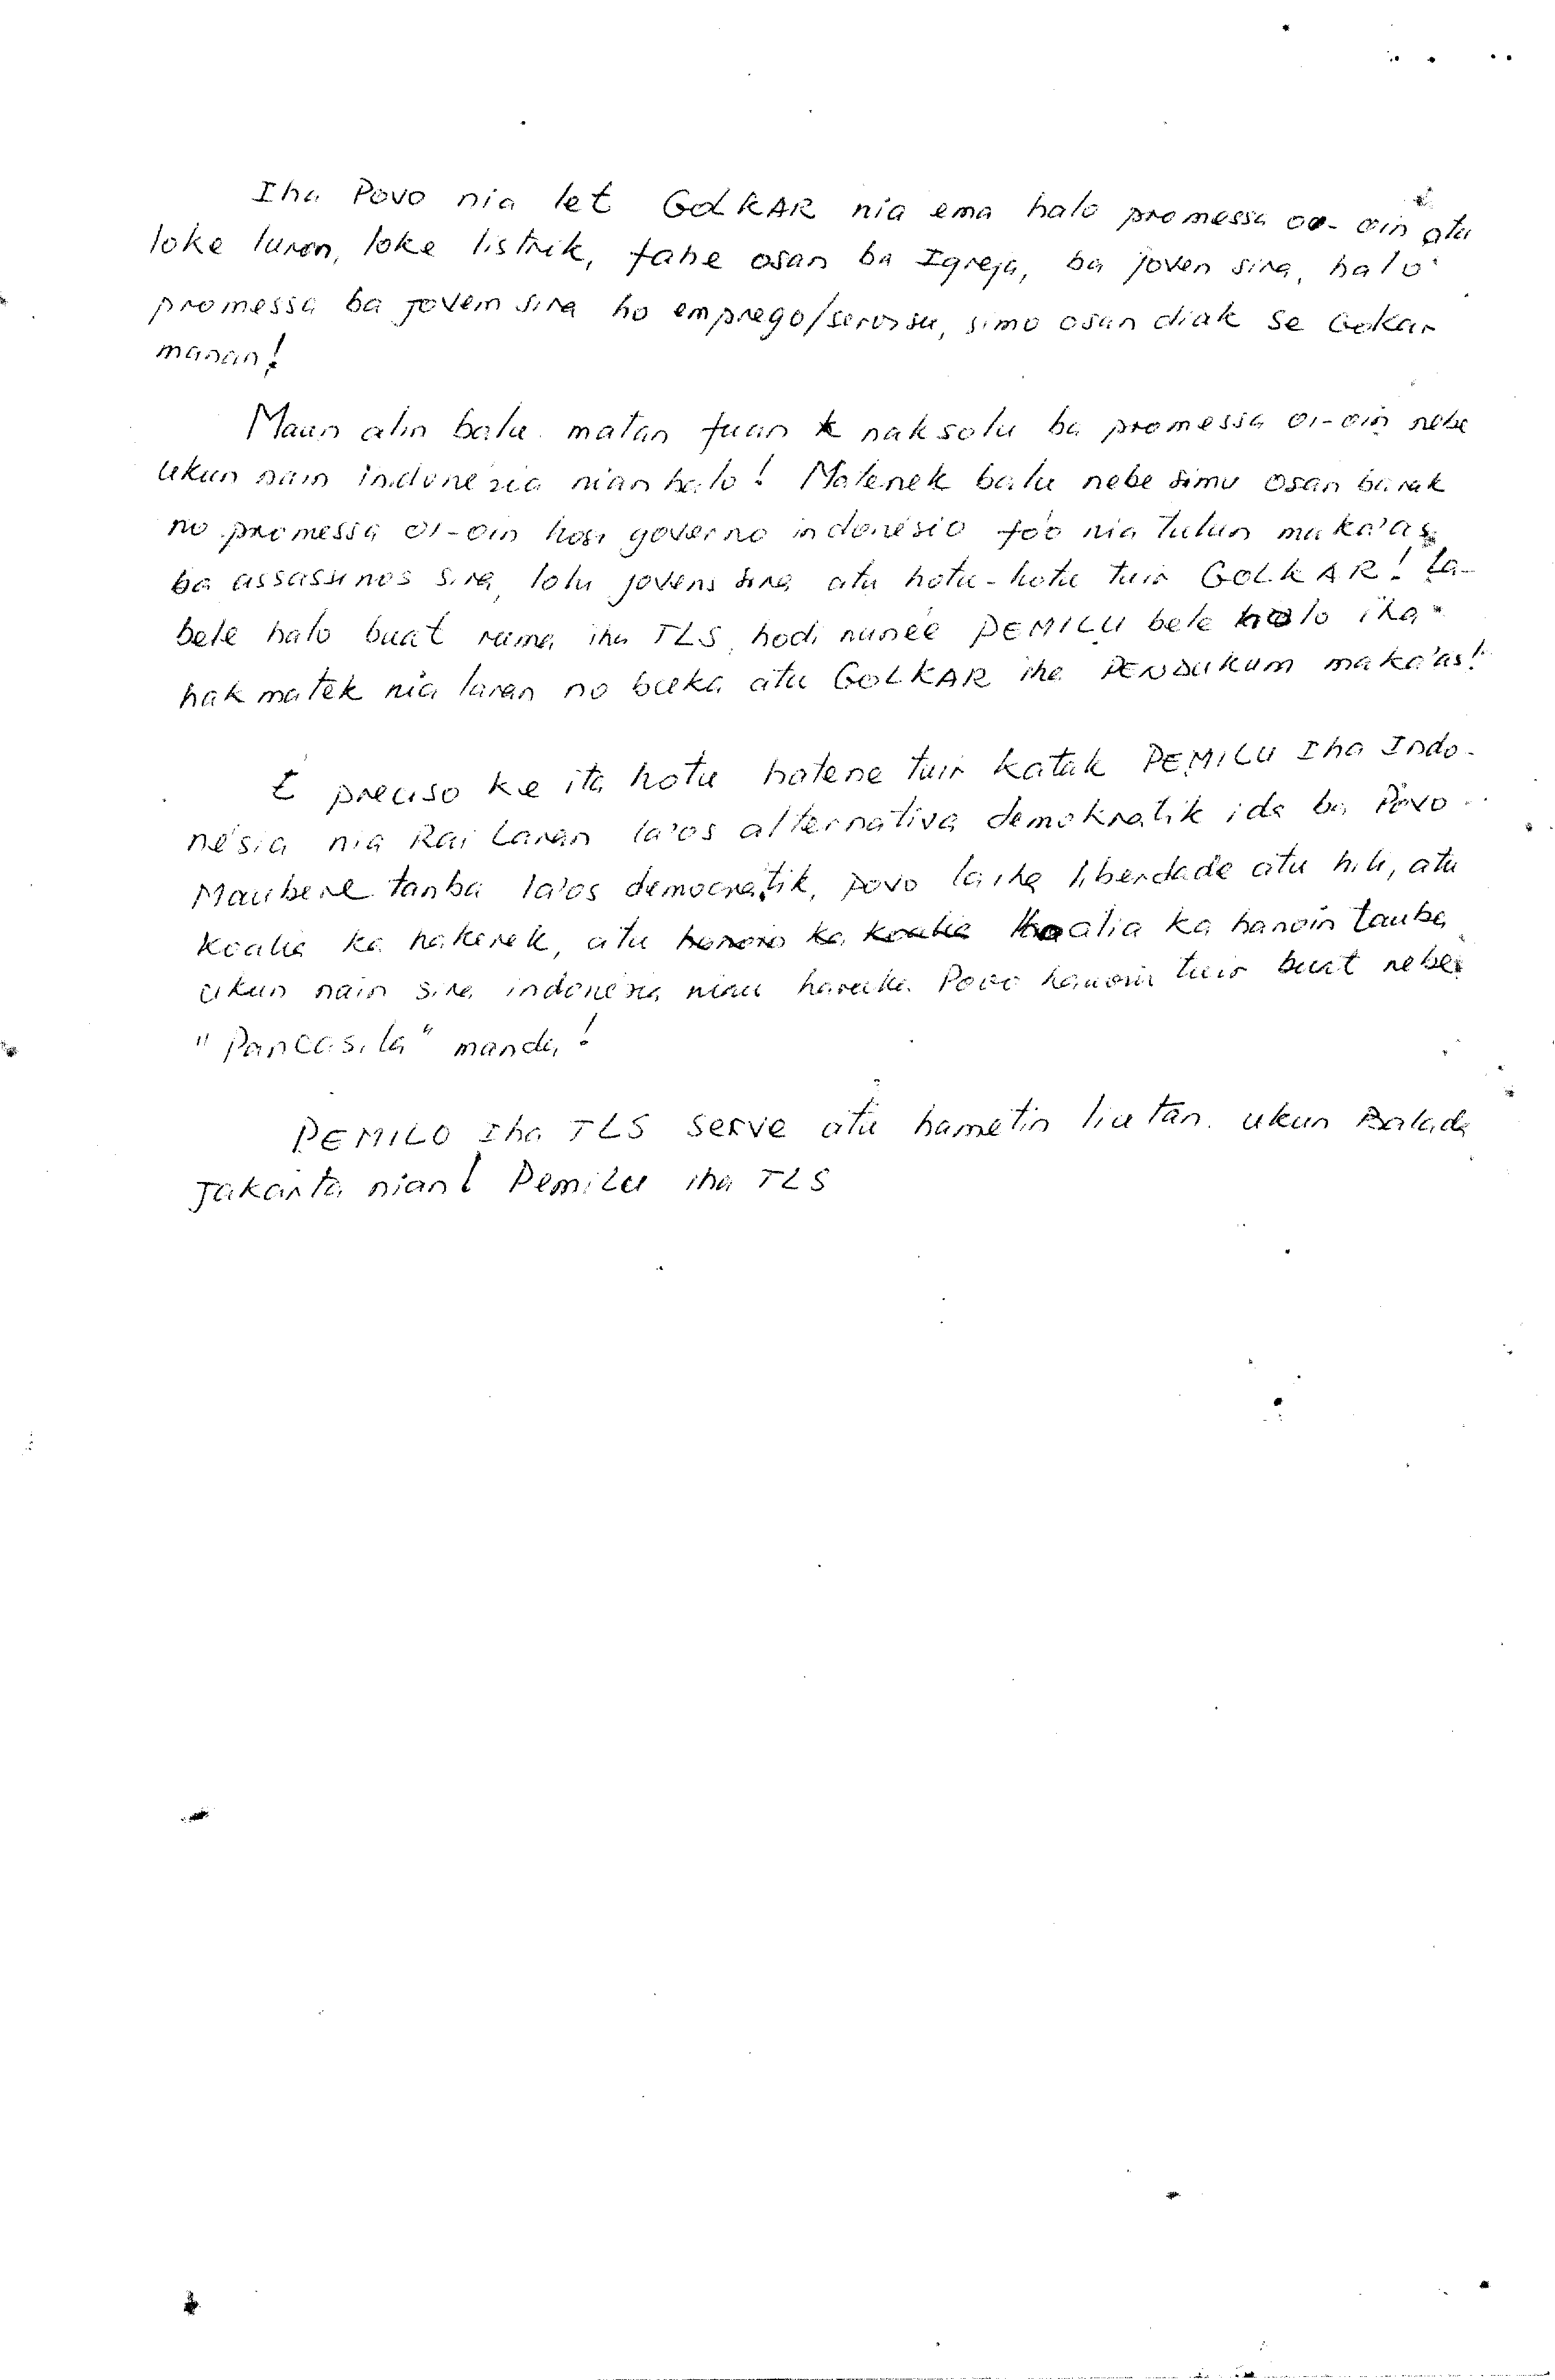 Iha Povo nia let GOLKAR nia ema halo promessa oo-oin atu
loke luron, loke listrik, fahe osan ba Igreja, ba joven sira, halo
promessa ba jovem sira ho emprego/servisu, simo osan diak se Gokar
manan!
Maun alin balu matan fuan naksolu ba promessa oi-oin nebe
ukun nain indonesia nian halo! Matenek balu nebe simu osan barak
no promessa oi-oin hosi governo indonésio fóo nia tulun maka'as
ba assassinos sira, lolu jovens sira atu hotu-hotu tuir GOLKAR! La-
bele halo buat ruma iha TLS, hodi nunéé PEMILU bele halo iha
hakmatek nia laran no buka atu GOLKAR iha PENDUKUM maka'as!
É preciso ke ita hotu hatene tuir katak PEMILU Iha Indo-
nésia nia Rai Laran la'os alternativa demokratik ida ba Povo
Maubere tanba la'os democratik, povo la iha liberdade atu hili, atu
koalia ka hakerek, atu hanoin ka koalia koalia ka hanoin tanba
ukun nain sira indonesia nian haruka Povo hanoin tuir buat nebe
"Pancasila" manda!
PEMILO Iha TLS serve atu hametin liu tan ukun
Jakarta nian! Pemilu iha TLS